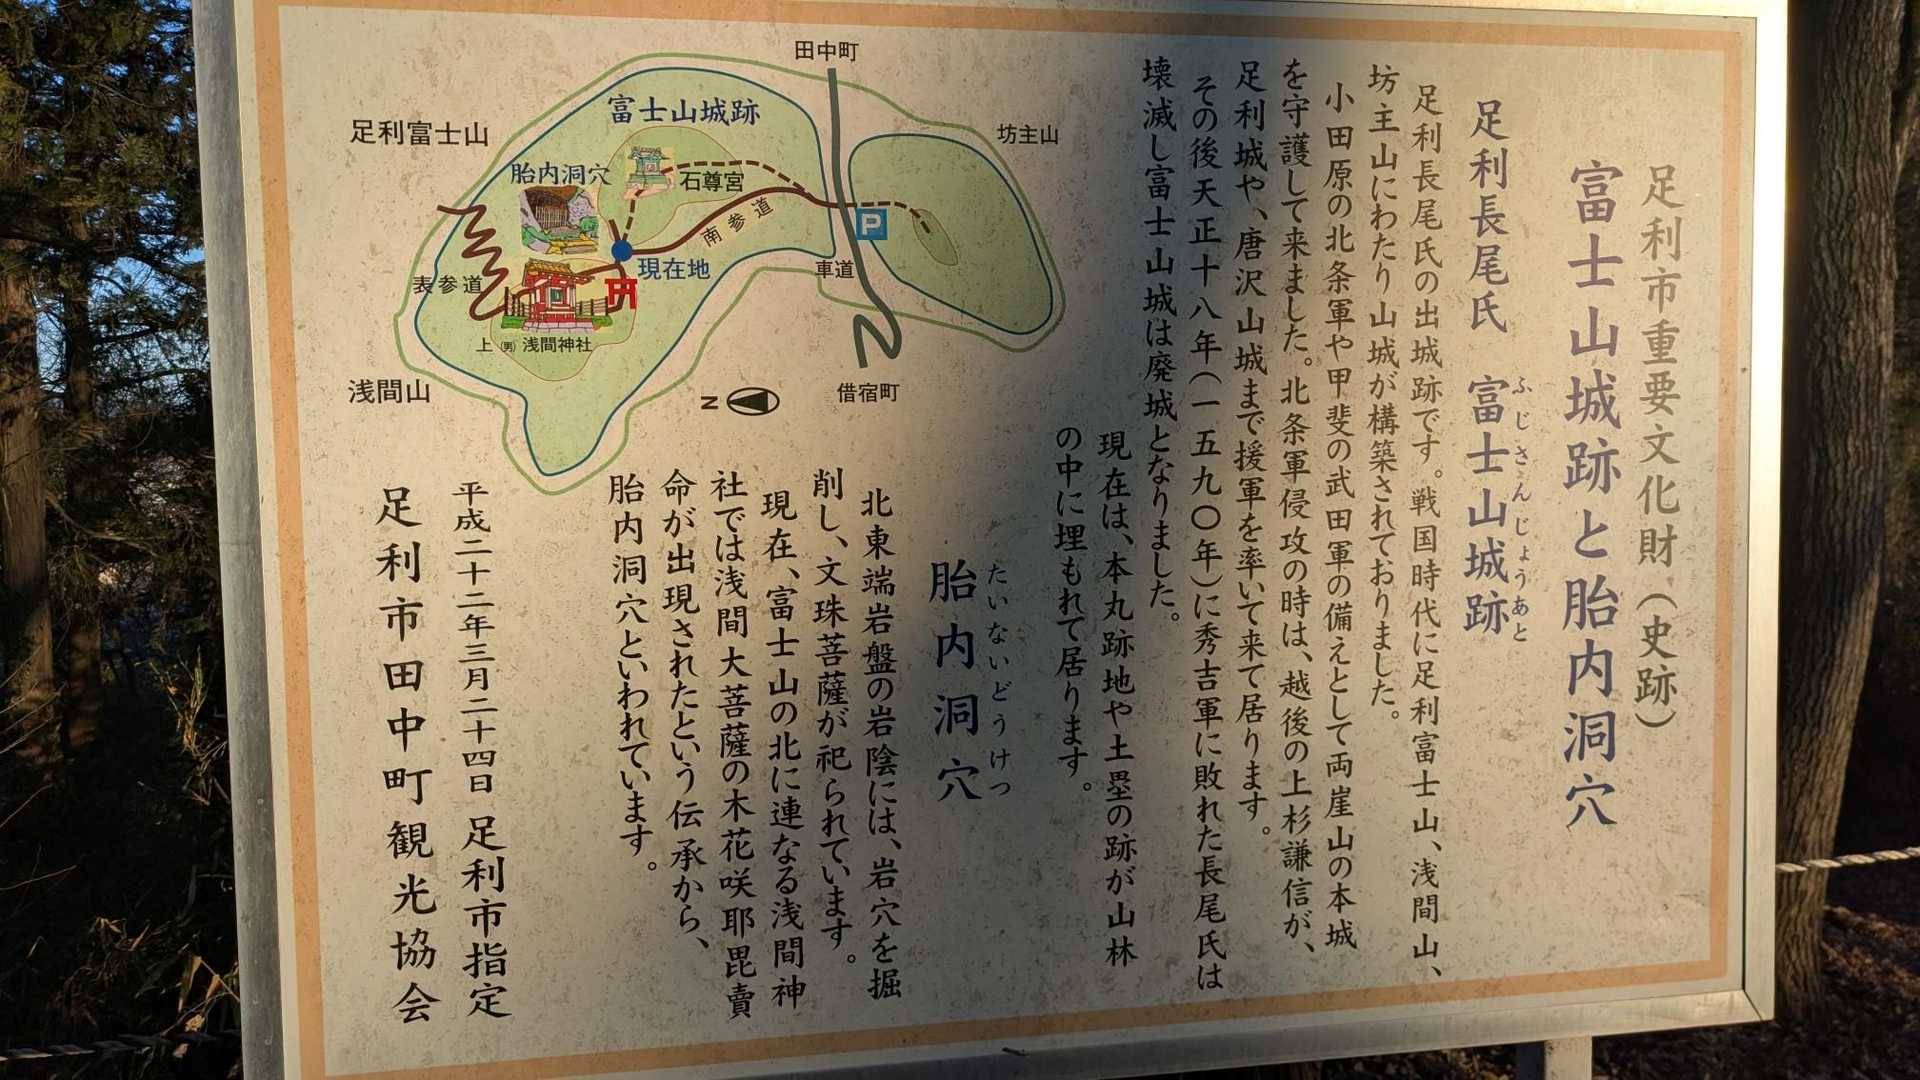 足利市重要文化財(史跡)
富士山城跡と胎内洞穴
足利長尾氏 富士山城跡
ふじさんじょうあと
足利長尾氏の出城跡です。戦国時代に足利富士山、浅間山、
坊主山にわたり山城が構築されておりました。
小田原の北条軍や甲斐の武田軍の備えとして両崖山の本城
を守護して来ました。北条軍侵攻の時は、越後の上杉謙信が、
足利城や、唐沢山城まで援軍を率いて来て居ります。
その後天正十八年(一五九〇年)に秀吉軍に敗れた長尾氏は
壊滅し富士山城は廃城となりました。
現在は、本丸跡地や土塁の跡が山林
の中に埋もれて居ります。
胎内洞穴
たいないどうけつ
北東端岩盤の岩陰には、岩穴を掘
削し、文珠菩薩が祀られています。
現在、富士山の北に連なる浅間神
社では浅間大菩薩の木花咲耶毘賣
命が出現されたという伝承から、
胎内洞穴といわれています。
平成二十二年三月二十四日 足利市指定
足利市田中町観光協会
田中町
足利富士山
富士山城跡
坊主山
胎内洞穴
石尊宮
南参道
P
現在地
車道
表参道
上(男)浅間神社
浅間山
N
借宿町